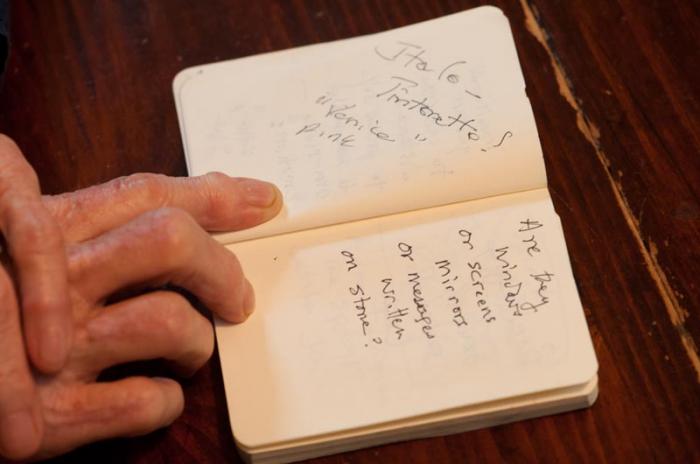 Italo -
Tintoretto?
"Venice"
pink
Are they
windows
or screens
mirrors
or messages
written
on stone?